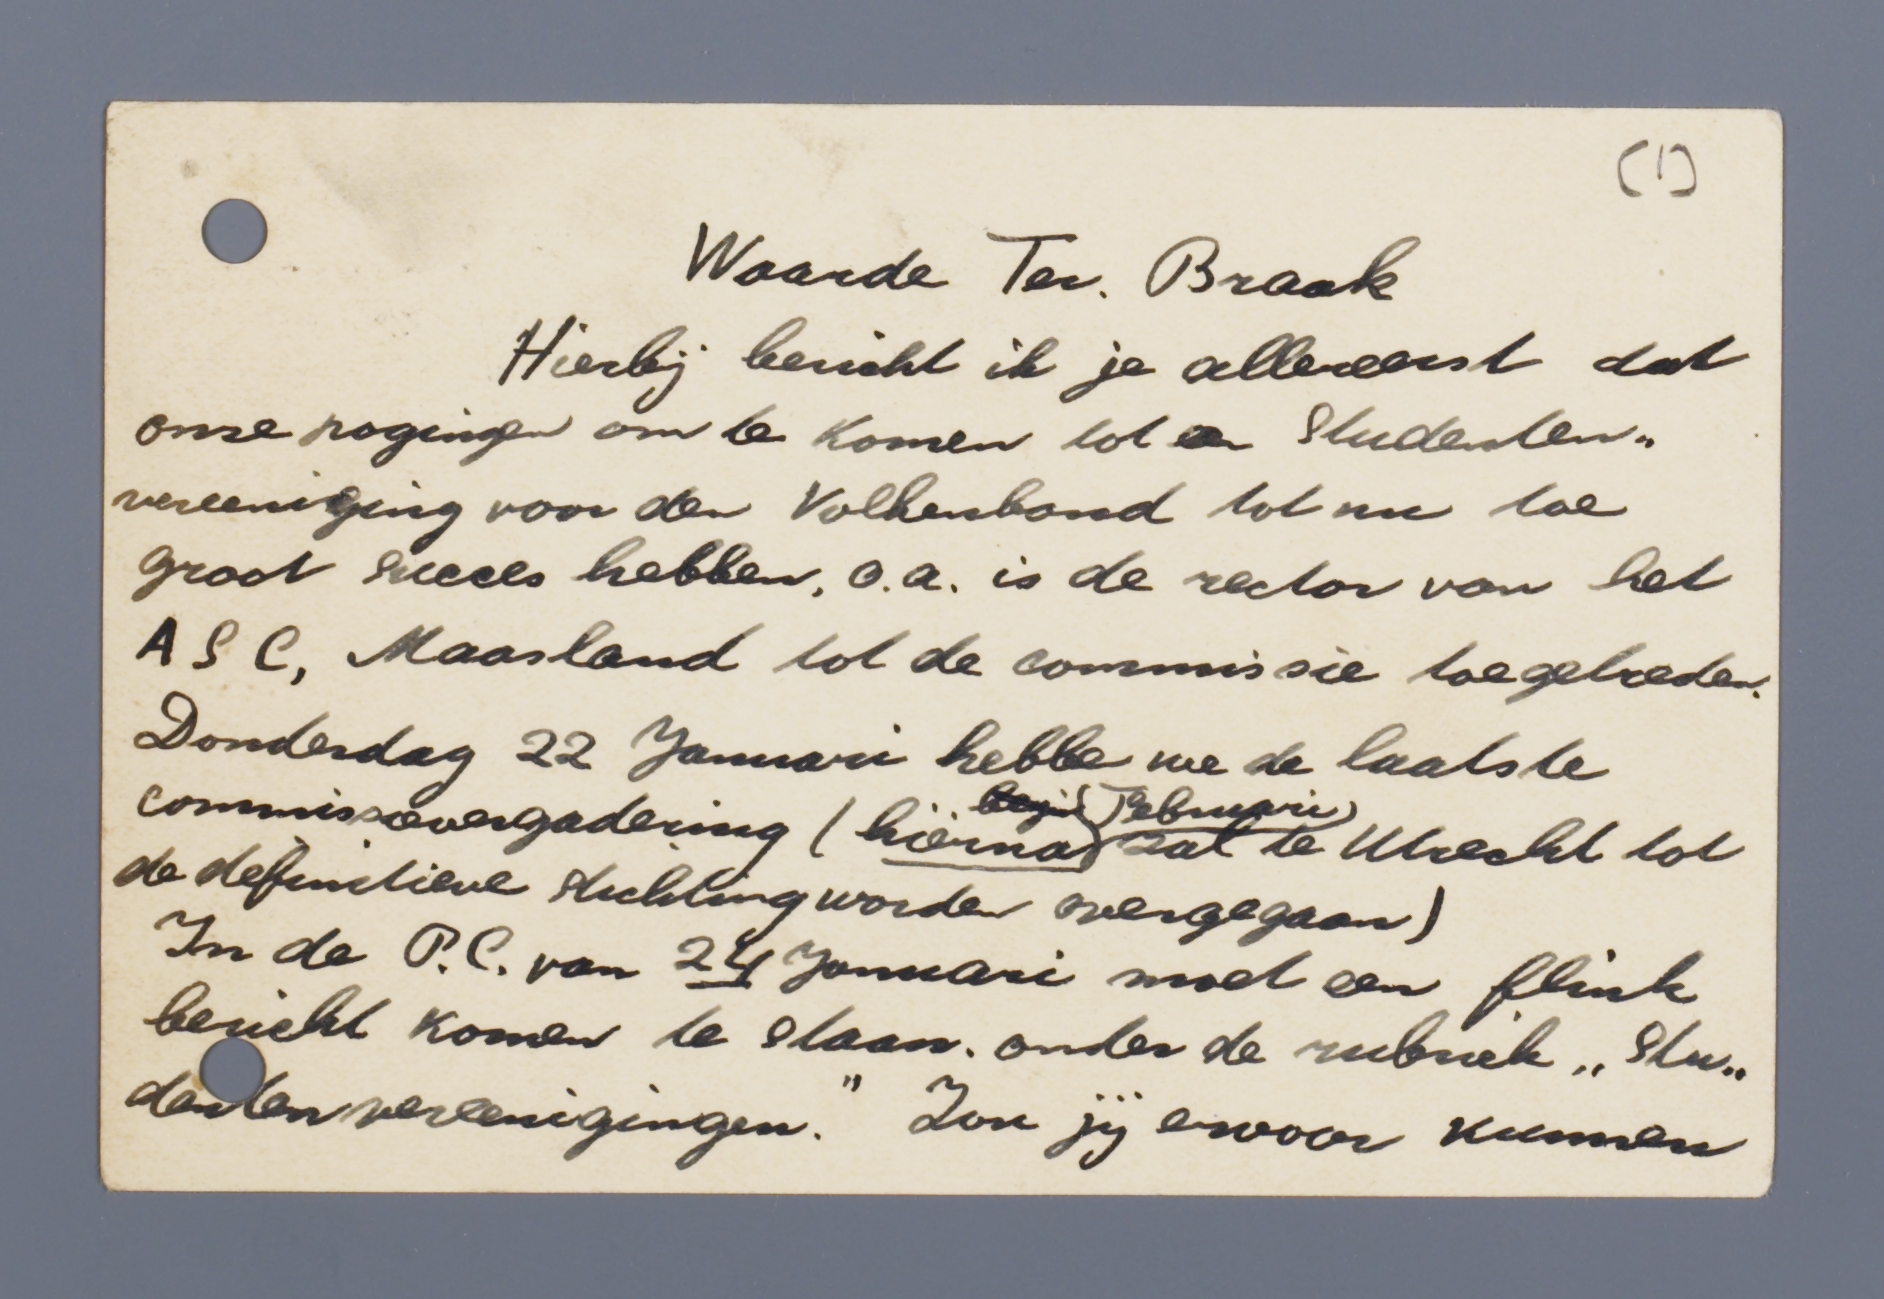 (1)
Waarde Ter. Braak
Hierbij bericht ik je allereerst dat
onze pogingen om te komen tot een Studenten„
vereeniging voor den Volkenbond tot nu toe
groot succes hebben, o.a. is de rector van het
A S C, Maasland tot de commissie toegetreden.
Donderdag 22 Januari hebbe we de laatste
begin Februari
commissievergadering (hierna) zal te Utrecht tot
de definitieve stichting worden overgegaan)
In de P.C. van 24 Januari moet een flink
bericht komen te staan. onder de rubriek „Stu„
denten vereenigingen." Zou jij ervoor kunnen